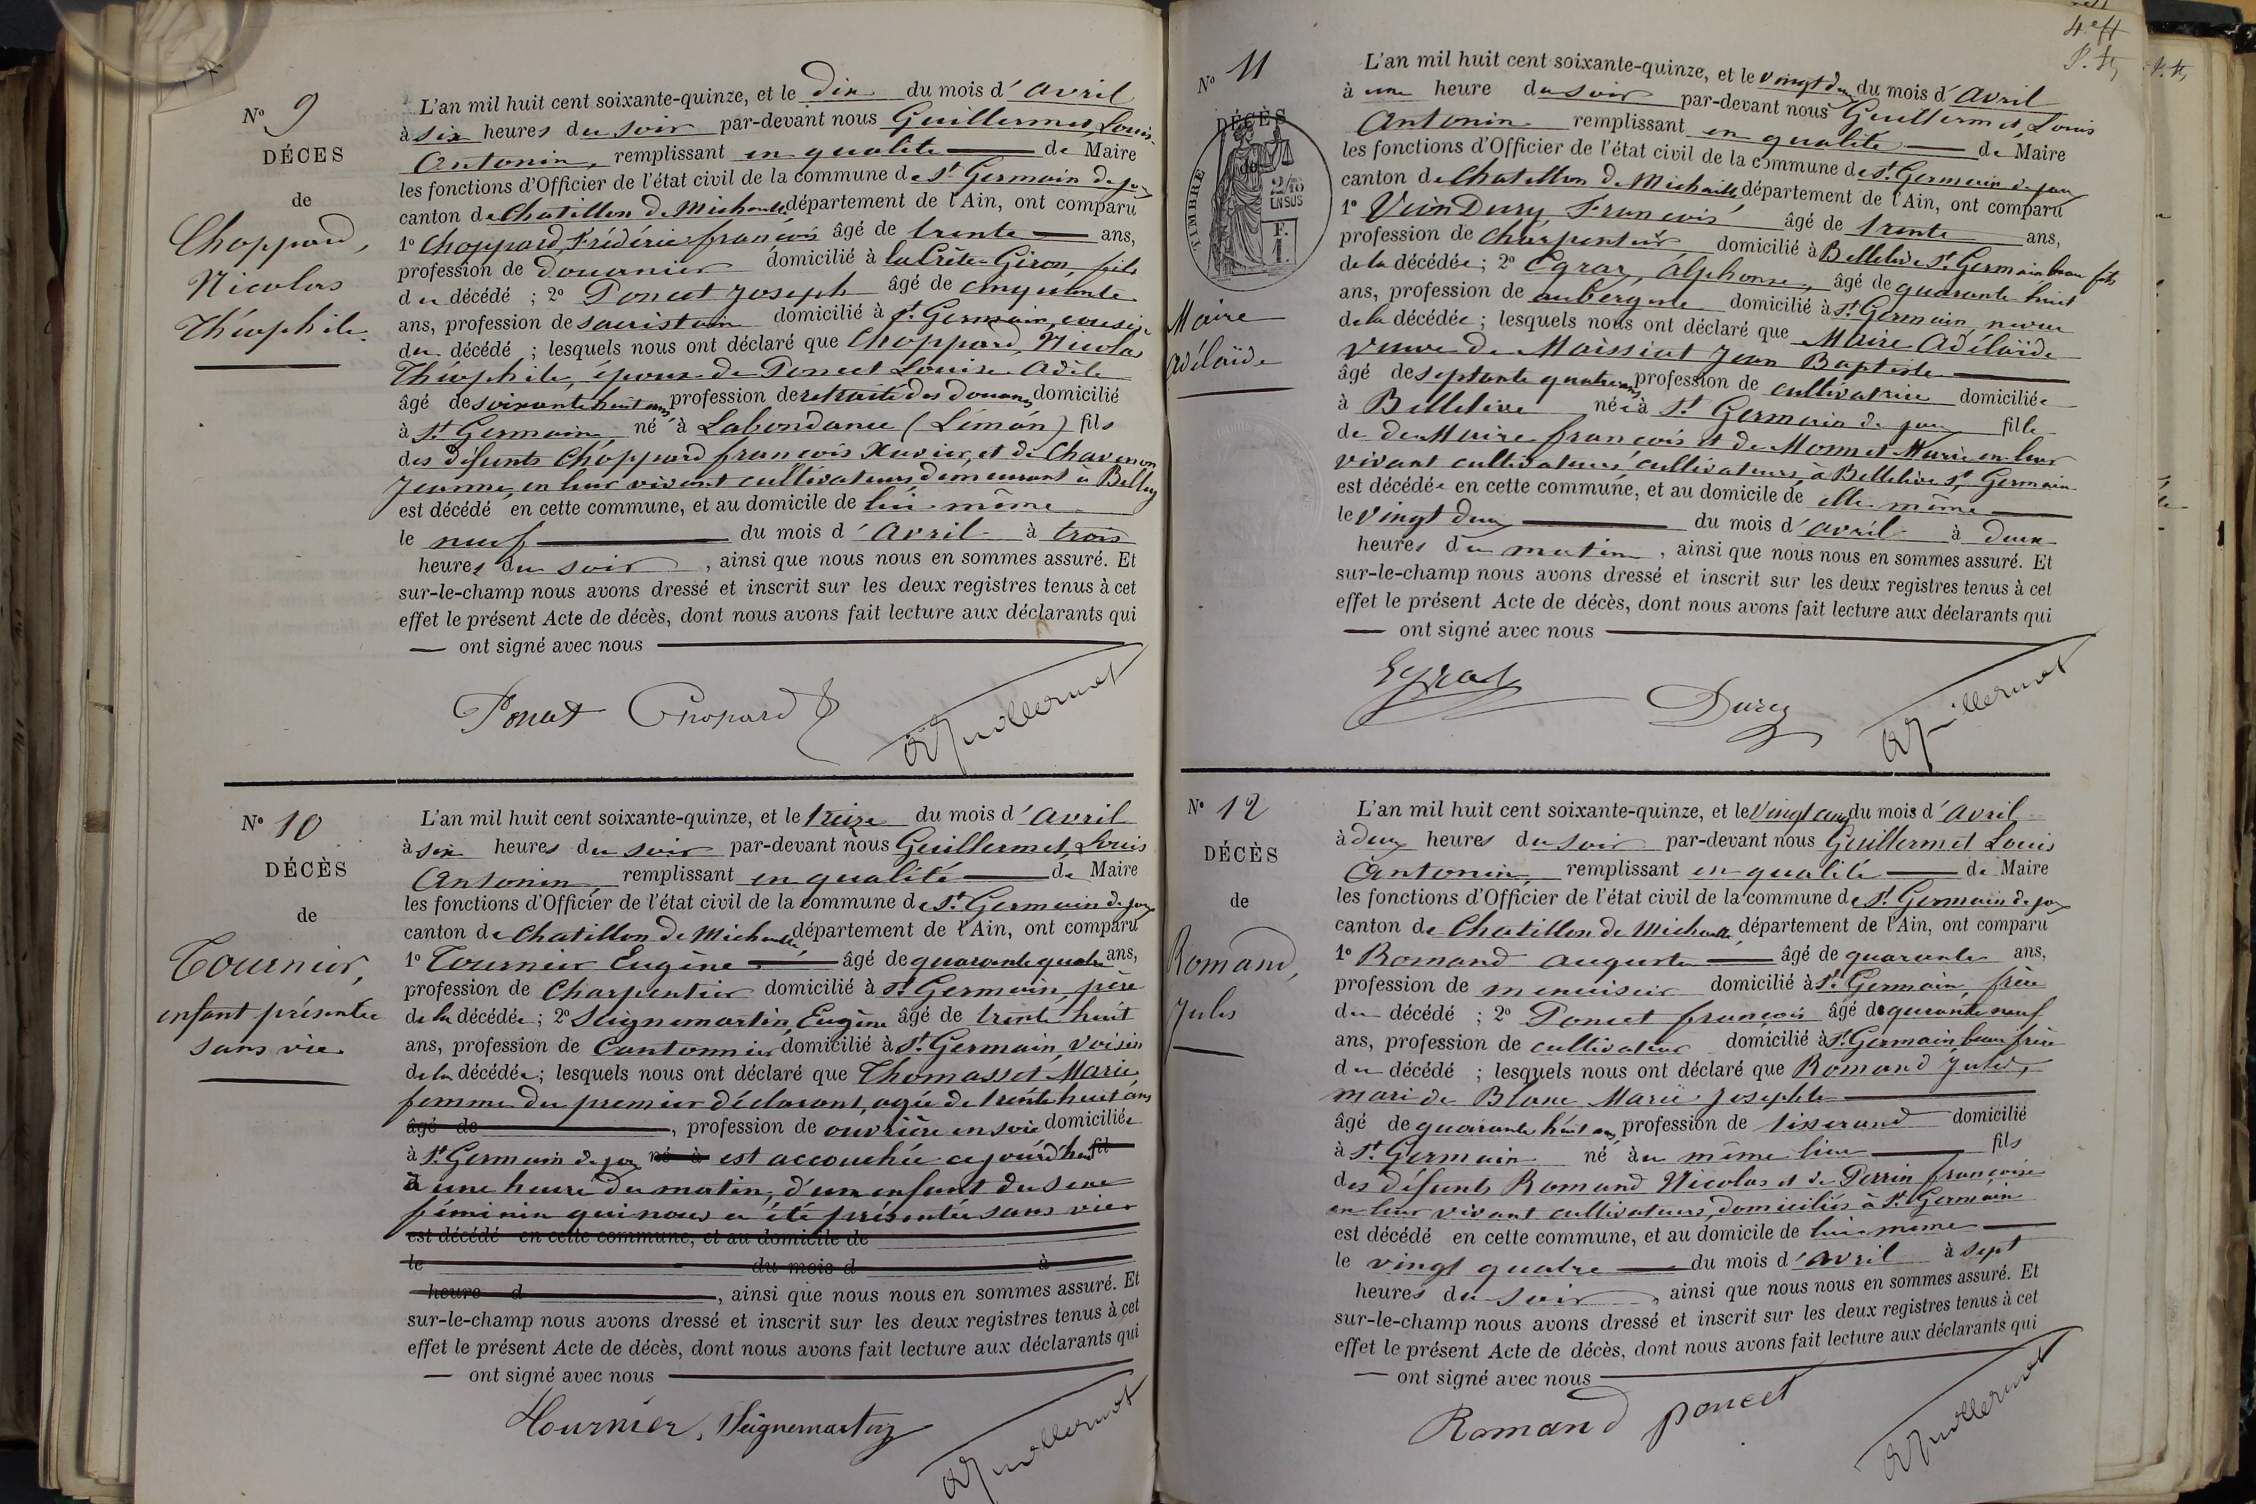 N° 9
DÉCES
de
Choppard,
Nicolas
Théophile.
L'an mil huit cent soixante-quinze, et le dix du mois d'avril
à six heures du soir par-devant nous Guillermet, Louis
Antonin, remplissant en qualité de Maire
les fonctions d'Officier de l'état civil de la commune de St Germain de joux
canton de Chatillon de Michaille département de l'Ain, ont comparu
1° Choppard, Frédéric françois âgé de trente ans,
profession de douanier domicilié à la Crête-Giron, fils
du décédé ; 2° Poncet Joseph âgé de cinquante
ans, profession de sacristain domicilié à St Germain, cousin
du décédé ; lesquels nous ont déclaré que Choppard, Nicolas
Théophile, époux de Poncet Louise Adèle
âgé de soixante huit ans, profession de retraité des douanes domicilié
à St Germain né à Labondance (Léman) fils
des défunts Choppard françois Xavier, et de Chavenon
Jeanne, en leur vivant cultivateurs, demeurant à Belley
est décédé en cette commune, et au domicile de lui-même
le neuf du mois d'avril à trois
heures du soir, ainsi que nous nous en sommes assuré. Et
sur-le-champ nous avons dressé et inscrit sur les deux registres tenus à cet
effet le présent Acte de décès, dont nous avons fait lecture aux déclarants qui
ont signé avec nous
Poncet Chopard Guillermet
N° 10
DÉCÈS
de
Tournier,
enfant présentée
sans vie
L'an mil huit cent soixante-quinze, et le treize du mois d'avril
à six heures du soir par-devant nous Guillermet, Louis
Antonin, remplissant en qualité de Maire
les fonctions d'Officier de l'état civil de la commune de St Germain de joux
canton de Chatillon de Michaille, département de l'Ain, ont comparu
1° Tournier Eugène âgé de quarante quatre ans,
profession de Charpentier domicilié à St Germain, père
de la décédée; 2° Seignemartin, Eugène âgé de trente huit
ans, profession de Cantonnier domicilié à St Germain, voisin
de la décédée; lesquels nous ont déclaré que Thomasset Marie,
femme du premier déclarant, agée de trente huit ans
âgé de , profession de ouvrière en soie domiciliée
à St Germain de joux né à est accouchée cejourd'hui fil
à une heure du matin, d'un enfant du sexe
féminin qui nous a été présentée sans vie
est décédé en cette commune, et au domicile de
le du mois d à
heure d , ainsi que nous nous en sommes assuré. Et
sur-le-champ nous avons dressé et inscrit sur les deux registres tenus à cet
effet le présent Acte de décès, dont nous avons fait lecture aux déclarants qui
ont signé avec nous
Tournier, Seignemartin Guillermet
N° 11
DÉCÈS
de
TIMBRE
2/10
EN SUS
F.
1.
Maire
Adélaïde
L'an mil huit cent soixante-quinze, et le vingt deux du mois d'avril
à une heure du soir par-devant nous Guillermet, Louis
Antonin remplissant en qualité de Maire
les fonctions d'Officier de l'état civil de la commune de St Germain de joux
canton de Chatillon de Michaille département de l'Ain, ont comparu
1° Vion Dury, François âgé de trente ans,
profession de Charpentier domicilié à Bellelive St Germain beau fils
de la décédée; 2° Egraz, Alphonse, âgé de quarante huit
ans, profession de aubergiste domicilié à St Germain, neveu
de la décédée; lesquels nous ont déclaré que Maire Adélaïde
veuve de Maissiat Jean Baptiste
âgé de septante quatre ans, profession de cultivatrice domiciliée
à Bellelive née à St Germain de joux fille
de de Maire françois et de Monnet Marie en leur
vivant cultivateurs cultivateurs, à Bellelive St Germain
est décédée en cette commune, et au domicile de elle même
le vingt deux du mois d'avril à deux
heures du matin, ainsi que nous nous en sommes assuré. Et
sur-le-champ nous avons dressé et inscrit sur les deux registres tenus à cet
effet le présent Acte de décès, dont nous avons fait lecture aux déclarants qui
ont signé avec nous
Egraz Dury Guillermet
N° 12
DÉCÈS
de
Romand,
Jules
L'an mil huit cent soixante-quinze, et le vingt cinq du mois d'avril
à deux heures du soir par-devant nous Guillermet Louis
Antonin, remplissant en qualité de Maire
les fonctions d'Officier de l'état civil de la commune de St Germain de joux
canton de Chatillon de Michaille, département de l'Ain, ont comparu
1° Romand auguste âgé de quarante ans,
profession de menuisier domicilié à St Germain, frère
du décédé ; 2° Poncet françois âgé de quarante neuf
ans, profession de cultivateur domicilié à St Germain, beau frère
du décédé ; lesquels nous ont déclaré que Romand Jules,
mari de Blanc Marie Josephte
âgé de quarante huit ans, profession de tisserand domicilié
à St Germain né au même lieu fils
des défunts Romand Nicolas et de Perrin françoise
en leur vivant cultivateurs, domiciliés à St Germain
est décédé en cette commune, et au domicile de lui-même
le vingt quatre du mois d'avril à sept
heures du soir, ainsi que nous nous en sommes assuré. Et
sur-le-champ nous avons dressé et inscrit sur les deux registres tenus à cet
effet le présent Acte de décès, dont nous avons fait lecture aux déclarants qui
ont signé avec nous
Romand poncet Guillermet